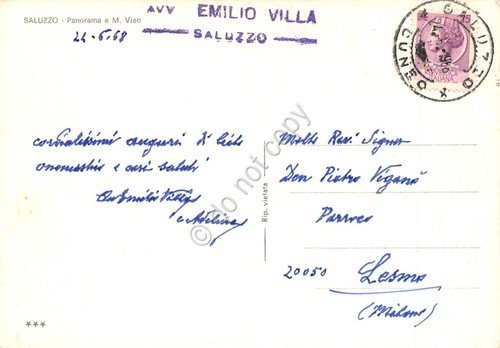 SALUZZO - Panorama e M. Viso
AVV EMILIO VILLA
SALUZZO
24-6-68
cordialissimi auguri di lieto
onomastico e cari saluti
Emilio Villa
e Adelina
Molto Rev. Signor
Don Pietro Viganò
Parroco
20050 Lesmo
(Milano)
Rip. vietata
SALUZZO
CUNEO
do not copy
***